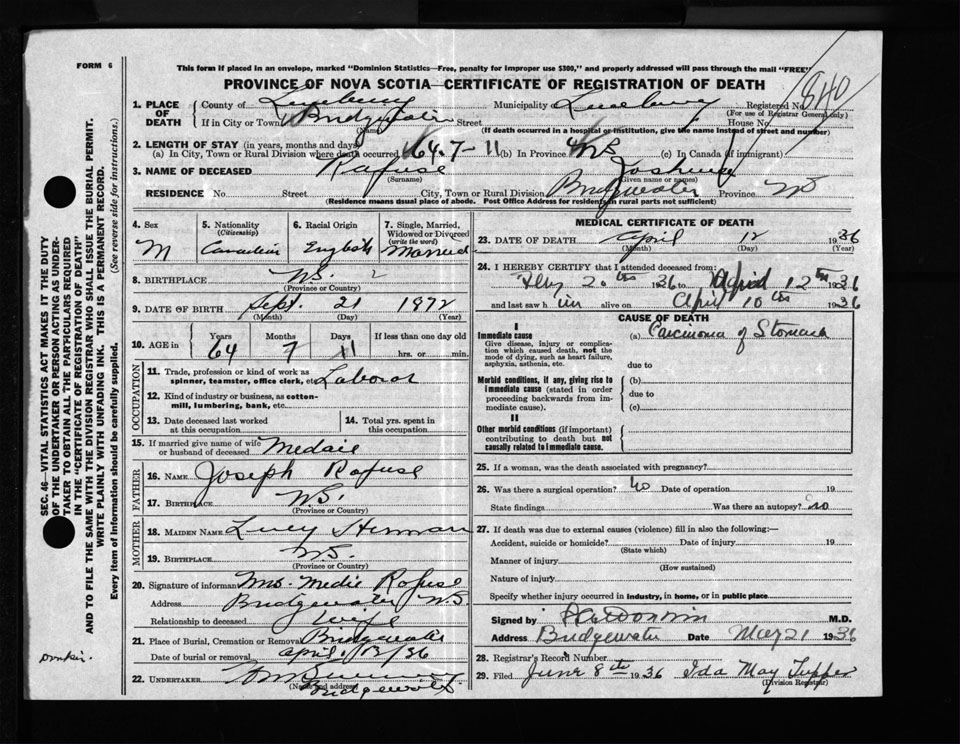 FORM 6
This form if placed in an envelope, marked "Dominion Statistics—Free, penalty for improper use $300," and properly addressed will pass through the mail "FREE"
PROVINCE OF NOVA SCOTIA—CERTIFICATE OF REGISTRATION OF DEATH
1. PLACE OF DEATH
County of Lunenburg Municipality Lunenburg Registered No. 840
(For use of Registrar General only)
If in City or Town Bridgewater Street House No.
(Name) (If death occurred in a hospital or institution, give the name instead of street and number)
2. LENGTH OF STAY (in years, months and days)
(a) In City, Town or Rural Division where death occurred 64.7-11 (b) In Province NS (c) In Canada (if immigrant)
3. NAME OF DECEASED Rafuse Joshua
(Surname) (Given name or names)
RESIDENCE No. Street. City, Town or Rural Division Bridgewater Province NS
(Residence means usual place of abode. Post Office Address for residents in rural parts not sufficient)
4. Sex
M
5. Nationality
(Citizenship)
Canadian
6. Racial Origin
English
7. Single, Married, Widowed or Divorced
(write the word)
Married
8. BIRTHPLACE N.S.
(Province or Country)
9. DATE OF BIRTH Sept. 21 1872
(Month) (Day) (Year)
10. AGE in Years Months Days If less than one day old
64 7 11 hrs. or min.
OCCUPATION
11. Trade, profession or kind of work as spinner, teamster, office clerk, etc. Labour
12. Kind of industry or business, as cotton-mill, lumbering, bank, etc.
13. Date deceased last worked at this occupation
14. Total yrs. spent in this occupation
15. If married give name of wife or husband of deceased Medaie
FATHER
16. NAME Joseph Rafuse
17. BIRTHPLACE N.S.
(Province or Country)
MOTHER
18. MAIDEN NAME Lucy Hirman
19. BIRTHPLACE N.S.
(Province or Country)
20. Signature of informant Mrs. Medie Rafuse
Address Bridgewater N.S.
Relationship to deceased Wife
21. Place of Burial, Cremation or Removal Bridgewater
Date of burial or removal April 13/36
22. UNDERTAKER
(Name and address)
MEDICAL CERTIFICATE OF DEATH
23. DATE OF DEATH April 12 1936
(Month) (Day) (Year)
24. I HEREBY CERTIFY that I attended deceased from:
20th 1936 to April 12th 1936
and last saw him alive on April 10th 1936
CAUSE OF DEATH
I
Immediate cause
Give disease, injury or complication which caused death, not the mode of dying, such as heart failure, asphyxia, asthenia, etc.
(a) Carcinoma of Stomach
due to
Morbid conditions, if any, giving rise to immediate cause (stated in order proceeding backwards from immediate cause).
(b)
due to
(c)
II
Other morbid conditions (if important) contributing to death but not causally related to immediate cause.
25. If a woman, was the death associated with pregnancy?
26. Was there a surgical operation? no Date of operation 19
State findings Was there an autopsy? no
27. If death was due to external causes (violence) fill in also the following:—
Accident, suicide or homicide? Date of injury 19
(State which)
Manner of injury
(How sustained)
Nature of injury
Specify whether injury occurred in industry, in home, or in public place
Signed by M.D.
Address Bridgewater Date May 21 1936
28. Registrar's Record Number
29. Filed June 8th 1936 Ida May Tupper
(Division Registrar)
SEC. 46—VITAL STATISTICS ACT MAKES IT THE DUTY OF THE UNDERTAKER OR PERSON ACTING AS UNDERTAKER TO OBTAIN ALL THE PARTICULARS REQUIRED IN THE "CERTIFICATE OF REGISTRATION OF DEATH" AND TO FILE THE SAME WITH THE DIVISION REGISTRAR WHO SHALL ISSUE THE BURIAL PERMIT.
WRITE PLAINLY WITH UNFADING INK. THIS IS A PERMANENT RECORD.
Every item of information should be carefully supplied. (See reverse side for instructions.)